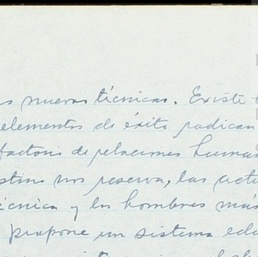 s nuevas técnicas. Existe
elementos de éxito radican
factores de relaciones huma
nos reserva, las acti
écnica y los hombres más
propone un sistema edu